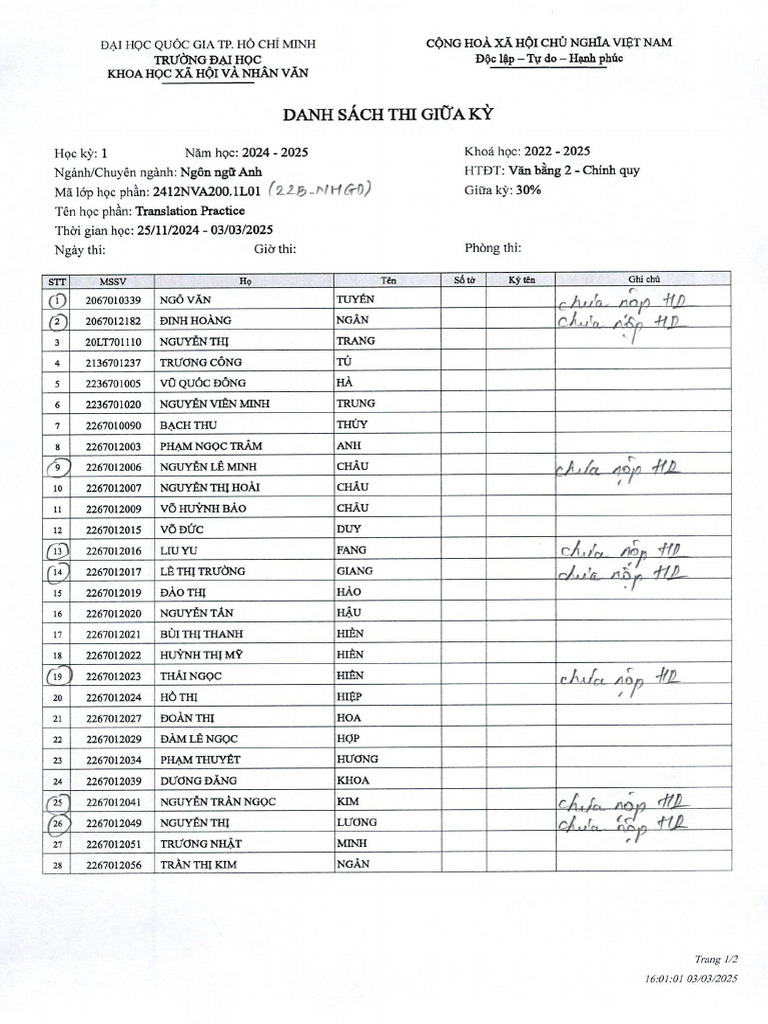 ĐẠI HỌC QUỐC GIA TP. HỒ CHÍ MINH
TRƯỜNG ĐẠI HỌC
KHOA HỌC XÃ HỘI VÀ NHÂN VĂN
CỘNG HOÀ XÃ HỘI CHỦ NGHĨA VIỆT NAM
Độc lập – Tự do – Hạnh phúc
DANH SÁCH THI GIỮA KỲ
Học kỳ: 1 Năm học: 2024 - 2025 Khoá học: 2022 - 2025
Ngành/Chuyên ngành: Ngôn ngữ Anh HTĐT: Văn bằng 2 - Chính quy
Mã lớp học phần: 2412NVA200.1L01 (22B-NHGD) Giữa kỳ: 30%
Tên học phần: Translation Practice
Thời gian học: 25/11/2024 - 03/03/2025
Ngày thi: Giờ thi: Phòng thi:
STT MSSV Họ Tên Số tờ Ký tên Ghi chú
1 2067010339 NGÔ VĂN TUYÊN chưa nộp HD
2 2067012182 ĐINH HOÀNG NGÂN chưa nộp HD
3 20LT701110 NGUYỄN THỊ TRANG
4 2136701237 TRƯƠNG CÔNG TÚ
5 2236701005 VŨ QUỐC ĐÔNG HÀ
6 2236701020 NGUYỄN VIÊN MINH TRUNG
7 2267010090 BẠCH THU THỦY
8 2267012003 PHẠM NGỌC TRÂM ANH
9 2267012006 NGUYỄN LÊ MINH CHÂU chưa nộp HD
10 2267012007 NGUYỄN THỊ HOÀI CHÂU
11 2267012009 VÕ HUỲNH BẢO CHÂU
12 2267012015 VÕ ĐỨC DUY
13 2267012016 LIU YU FANG chưa nộp HD
14 2267012017 LÊ THỊ TRƯỜNG GIANG chưa nộp HD
15 2267012019 ĐÀO THỊ HẢO
16 2267012020 NGUYỄN TẤN HẬU
17 2267012021 BÙI THỊ THANH HIỀN
18 2267012022 HUỲNH THỊ MỸ HIỀN
19 2267012023 THÁI NGỌC HIỀN chưa nộp HD
20 2267012024 HỒ THỊ HIỆP
21 2267012027 ĐOÀN THỊ HOA
22 2267012029 ĐÀM LÊ NGỌC HỢP
23 2267012034 PHẠM THUYẾT HƯƠNG
24 2267012039 DƯƠNG ĐĂNG KHOA
25 2267012041 NGUYỄN TRẦN NGỌC KIM chưa nộp HD
26 2267012049 NGUYỄN THỊ LƯƠNG chưa nộp HD
27 2267012051 TRƯƠNG NHẬT MINH
28 2267012056 TRẦN THỊ KIM NGÂN
Trang 1/2
16:01:01 03/03/2025